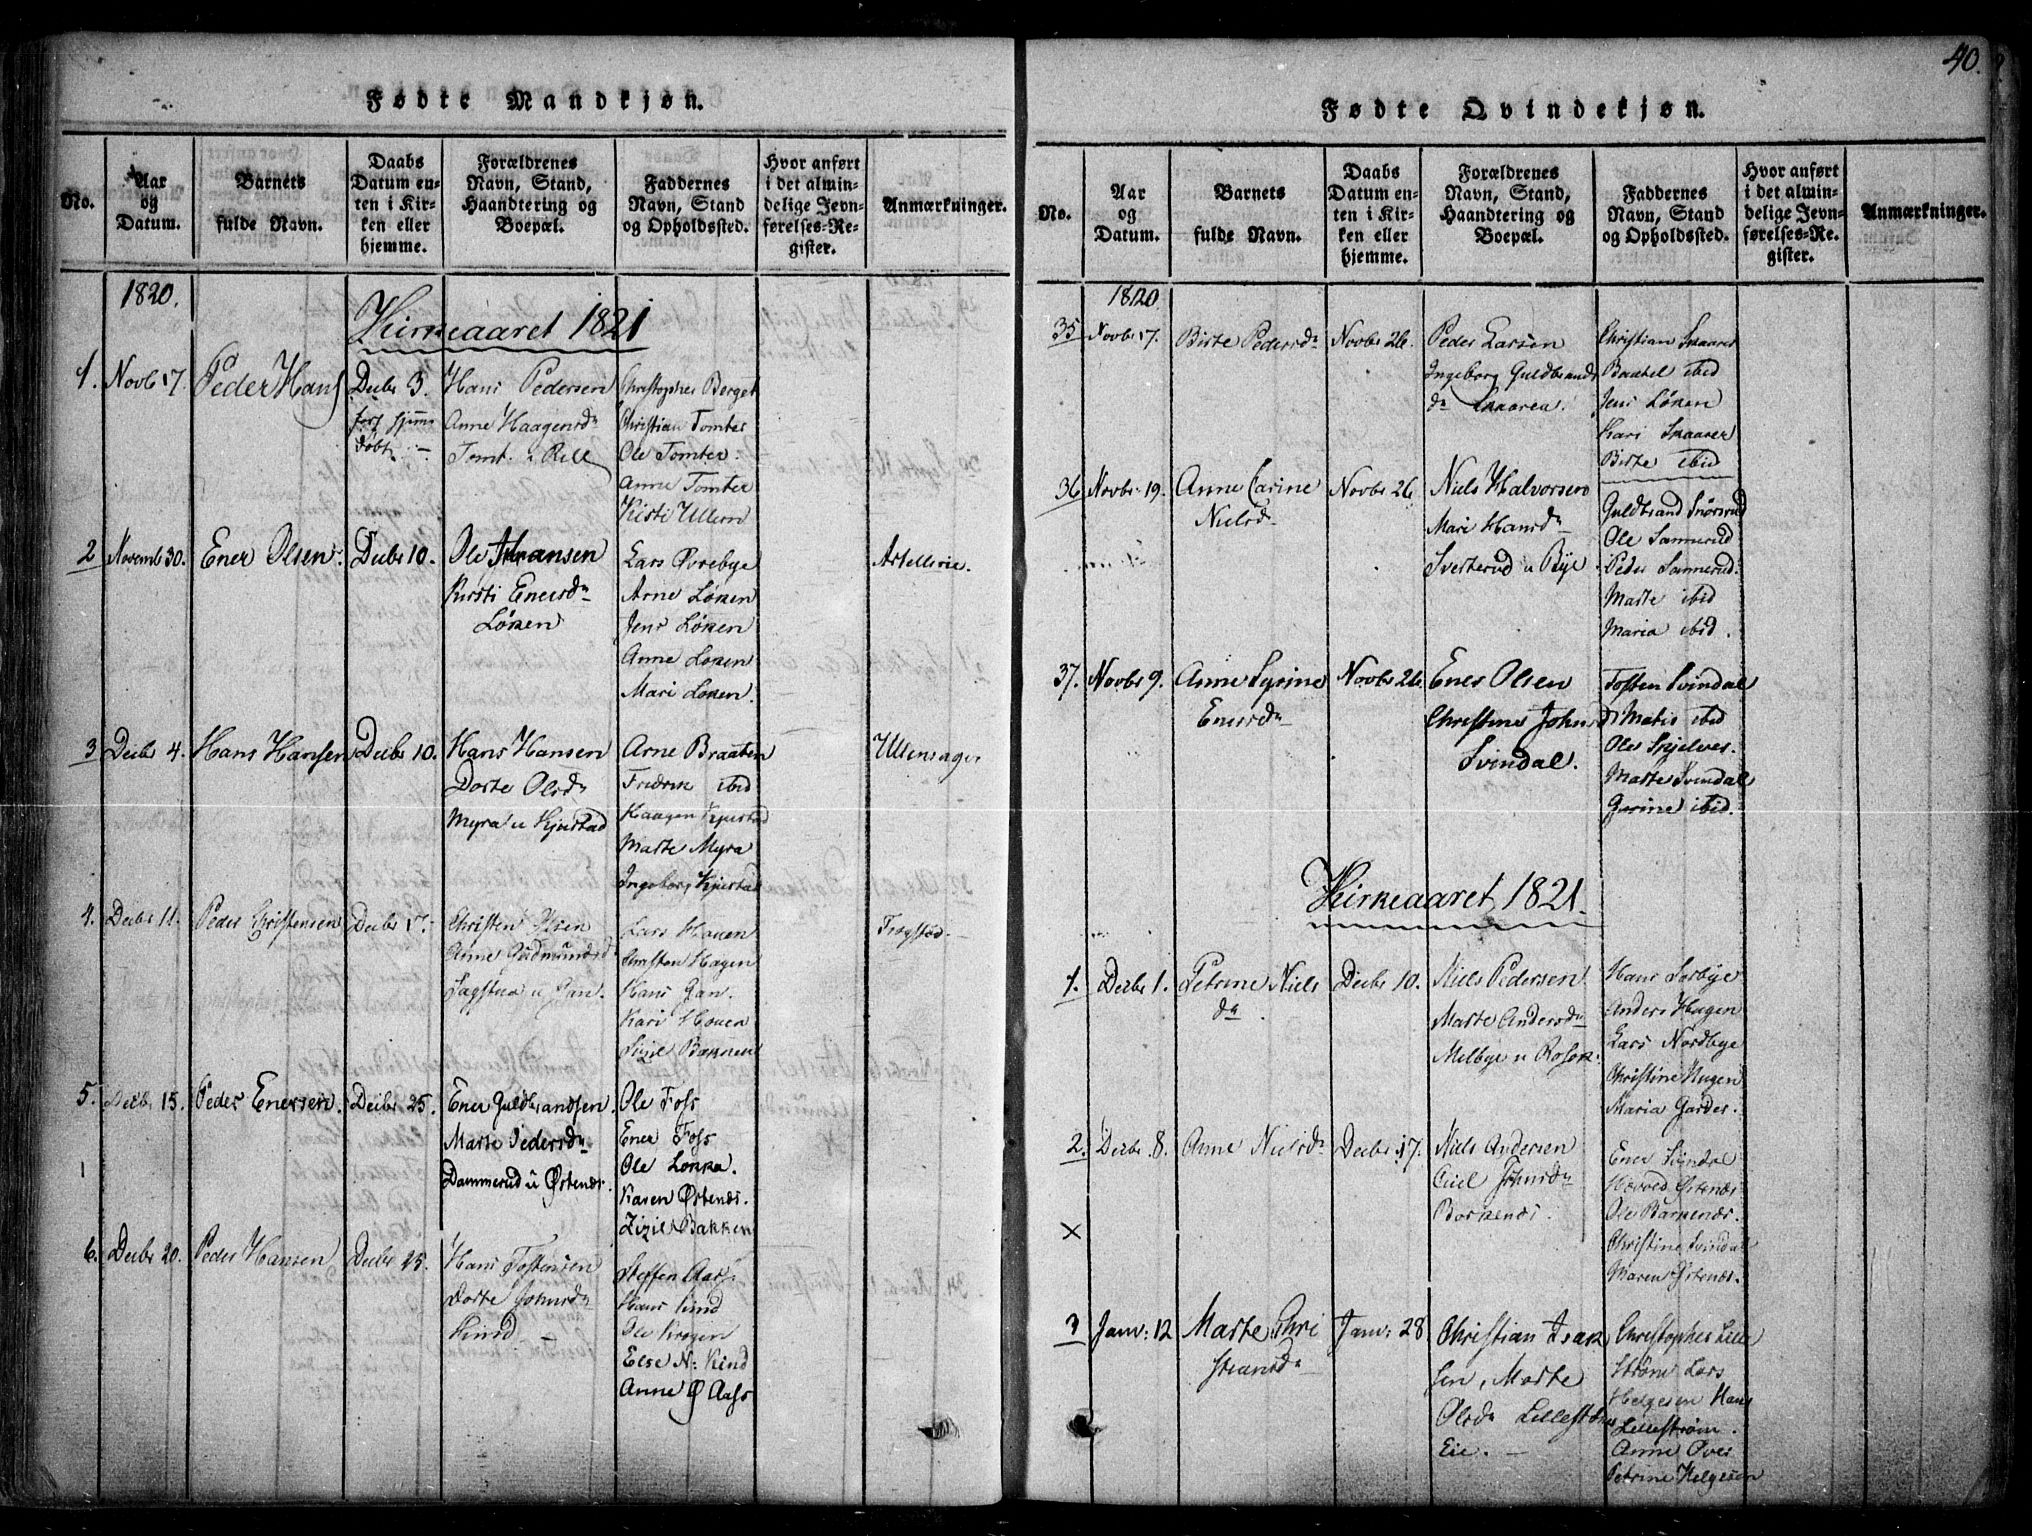 40.
Fødte Mandkjøn.
No.
Aar og Datum.
Barnets fulde Navn.
Daabs Datum enten i Kirken eller hjemme.
Forældrenes Navn, Stand, Haandtering og Boepæl.
Faddernes Navn, Stand og Opholdssted.
Hvor anført i det almindelige Jevnførelses-Register.
Anmærkninger.
1820.
Kirkeaaret 1821
1. Novb 17. Peder Hans
Decbr 3.
døbt. —
Hans Pedersen
Anne Haagensdr
Tomt.
Christopher Berget
Christian Tomter
Ole Tomter.
Anne Tomter
Kisti Ullern
2 Novemb 30. Ener Olsen. Decbr 10.
Ole
Kirsti Enersdr
Løken
Lars Øvrebye
Arne Løken
Jens Løken
Anne Løken
Mari Løken.
Artellerie.
3 Decbr 4. Hans Hansen Decbr 10.
Hans Hansen
Dorte Olsdr
Myra u Kjustad
Arne Braaten
Fredrik ibid
Haagen Kjustad
Marte Myra
Ingeborg Kjustad
Ullensager
4. Decbr 11. Peder Christensen Decbr 17.
Christen Olsen
Anne Gudmundsd
u Gan.
Lars Houen
Christen Hagen
Hans Gan.
Kari Houen
Sizil Bakken
Trøgstad.
5. Decbr 15. Peder Enersen. Decbr 25.
Ener Guldbrandsen.
Marte Pedersdr
Dammerud u Østenæs.
Ole Foss
Ener Foss
Ole Løkka.
Karen Østenæs.
Zizil Bakken
6. Decbr 20. Peder Hansen Decbr 25.
Hans Tostensen
Dorte Johnsdr
Kind. —
Steffen Aas.
Hans Kind
Ole Krogen
Else N: Kind
Anne Ø Aass
Fødte Qvindekjøn.
No.
Aar og Datum.
Barnets fulde Navn.
Daabs Datum enten i Kirken eller hjemme.
Forældrenes Navn, Stand, Haandtering og Boepæl.
Faddernes Navn, Stand og Opholdssted.
Hvor anført i det almindelige Jevnførelses-Register.
Anmærkninger.
1820.
35 Novbr 17. Birte Pedersdr Novbr 26.
Peder Larsen
Ingeborg Guldbrands
dr Skaarer.
Christian Skaarer
Baartel ibid
Jens Løken
Kari Skaarer
Birte ibid
36 Novbr 19. Anne Carine
Nielsdr
Novbr 26
Niels Halvorsen
Mari Hansdr
Sverterud u Bye
Guldbrand
Ole Sannerud
Peder Sannerud.
Marte ibid
Maria ibid.
37. Novbr 9. Anne Syrine
Enersdr
Novbr 26
Ener Olsen
Christine Johnsd
Svindal.
Tosten Svindal
Matis ibid
Ole
Marte Svindal
Gurine ibid.
Kirkeaaret 1821.
1. Decbr 1. Petrine Niels
dr
Decbr 10.
Niels Pedersen
Marte Andersdr
Melbye u
Hans Sorbye
Anders Hagen
Lars Nordbye
Christine Hagen
Maria Garder.
2. Decbr 8. Anne Nielsdr Decbr 17.
Niels Andersen
Johnsdr
Borkenæs.
Ener Svindal
Østenæs
Ole Barkenæs.
Christine Svindal
Maren Østenæs.
X
3 Janv: 12 Marte Chri
stiansdr
Janv: 28
Christian Isak
sen, Marte
Olsdr Lillestrøms
Eie. —
Christopher Lille
strøm Lars
Helgesen Hans
Lillestrøm
Anne Over
Petrine Helgesen